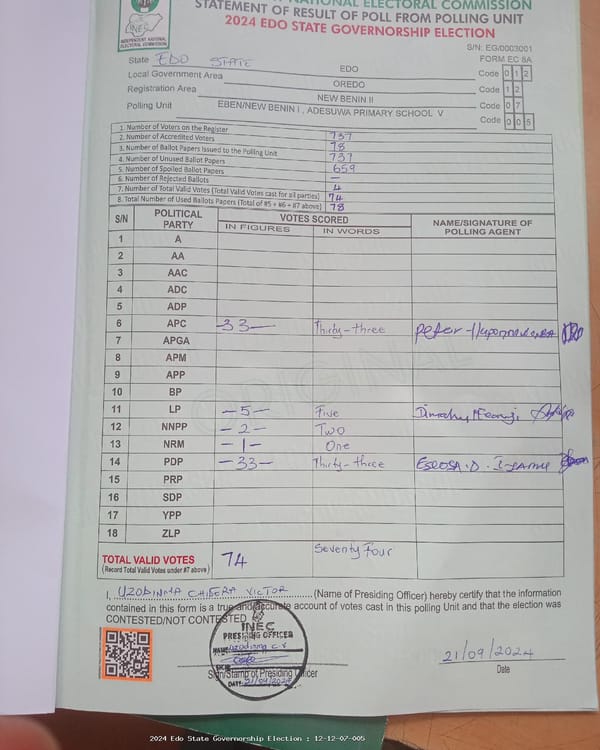 NATIONAL ELECTORAL COMMISSION
STATEMENT OF RESULT OF POLL FROM POLLING UNIT
2024 EDO STATE GOVERNORSHIP ELECTION
INEC
INDEPENDENT NATIONAL ELECTORAL COMMISSION
S/N: EG/0003001
FORM EC 8A
State EDO STATE EDO Code 0 1 2
Local Government Area OREDO Code 1 2
Registration Area NEW BENIN II Code 0 7
Polling Unit EBEN/NEW BENIN I , ADESUWA PRIMARY SCHOOL V Code 0 0 5
1. Number of Voters on the Register 737
2. Number of Accredited Voters 78
3. Number of Ballot Papers Issued to the Polling Unit 737
4. Number of Unused Ballot Papers 659
5. Number of Spoiled Ballot Papers —
6. Number of Rejected Ballots 4
7. Number of Total Valid Votes (Total Valid Votes cast for all parties) 74
8. Total Number of Used Ballots Papers (Total of #5 + #6 + #7 above) 78
S/N POLITICAL PARTY VOTES SCORED NAME/SIGNATURE OF POLLING AGENT
IN FIGURES IN WORDS
1 A
2 AA
3 AAC
4 ADC
5 ADP
6 APC 33— Thirty-three Peter
7 APGA
8 APM
9 APP
10 BP
11 LP —5— Five
12 NNPP —2— Two
13 NRM —1— One
14 PDP —33— Thirty-three ESEOSA.D.
15 PRP
16 SDP
17 YPP
18 ZLP
TOTAL VALID VOTES 74 Seventy Four
(Record Total Valid Votes under #7 above)
I, UZODINMA CHISERA VICTOR (Name of Presiding Officer) hereby certify that the information
contained in this form is a true and accurate account of votes cast in this polling Unit and that the election was
CONTESTED/NOT CONTESTED
INEC
PRESIDING OFFICER
NAME: Uzodinma C.V
SIGN
DATE: 21/09/2024
Sign/Stamp of Presiding Officer
21/09/2024
Date
2024 Edo State Governorship Election : 12-12-07-005